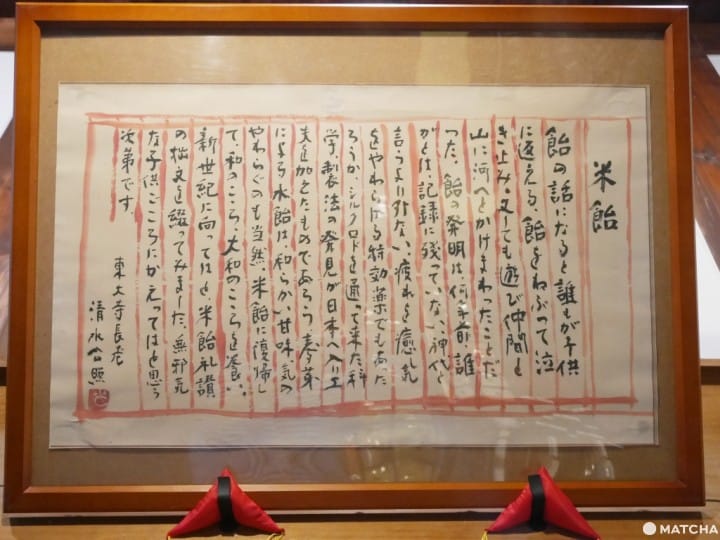 米飴
飴の話になると誰もが子供
に返える、飴をねぶって泣
き止み、又しても遊び仲間と
山に河へとかけまわったことだ
った、飴の発明は何年前、誰
がとは、記録に残っていない、神代と
言うより外ない、疲れを癒し気
をやわらげる特効薬でもあった
ろうか、シルクロードを通って来た科
学、製法の発見が日本へ入り工
夫を加えたものであろう、麦芽
による水飴は、和らかい甘味気の
やわらぐのも当然、米飴に復帰し
て、和のこころ、大和のこころを養い、
新世紀に向ってはと、米飴礼讃
の拙文を綴ってみました、無邪気
な子供ごころにかえってはと思う
次第です
東大寺長老
清水公照
MATCHA